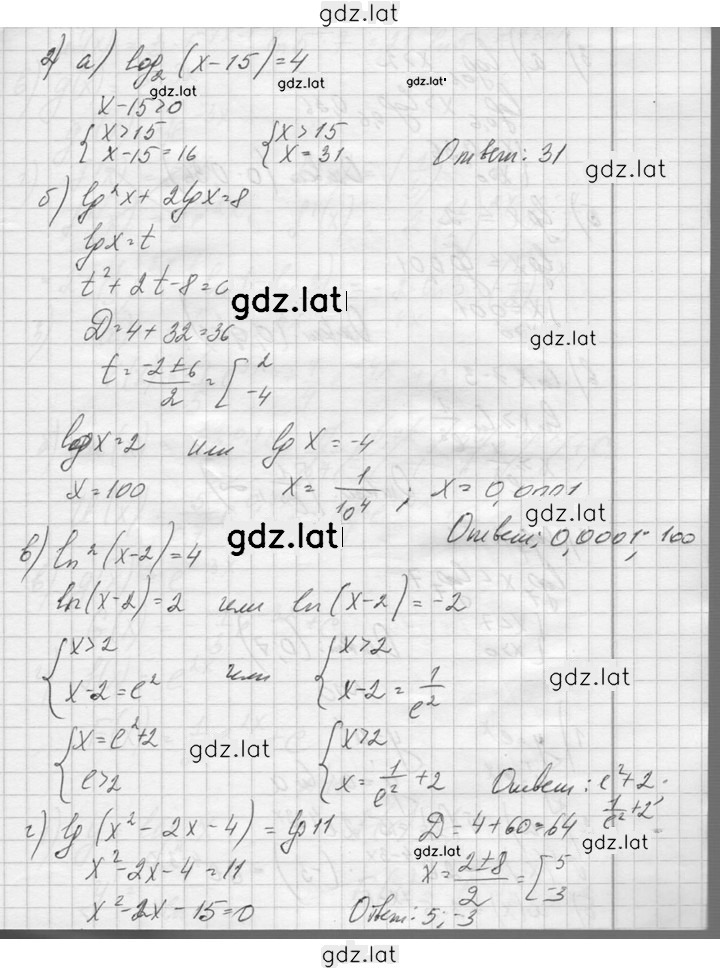 gdz.lat
2) а) log₂(x-15)=4
gdz.lat gdz.lat gdz.lat
x-15>0
{x>15 {x>15
x-15=16 x=31 Ответ: 31
gdz.lat
б) lg²x+2lgx=8
lgx=t
t²+2t-8=0
gdz.lat
D=4+32=36
gdz.lat
t=(-2±6)/2=[2
-4
lgx=2 или lgx=-4
x=100 x=1/10⁴; x=0,0001
gdz.lat
gdz.lat Ответ: 0,0001; 100
в) ln²(x-2)=4
ln(x-2)=2 или ln(x-2)=-2
{x>2 или {x>2
x-2=e² x-2=1/e²
gdz.lat
{x=e²+2 {x>2
gdz.lat
e>2 x=1/e²+2 Ответ: e²+2;
1/e²+2
г) lg(x²-2x-4)=lg11 D=4+60=64
gdz.lat gdz.lat
x²-2x-4=11 x=(2±8)/2=[5
-3
x²-2x-15=0 Ответ: 5; -3
gdz.lat